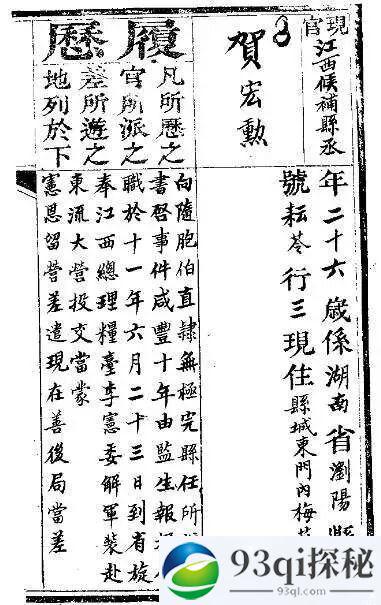 現官
江西候補縣丞
賀宏勳
年二十六歲係湖南省瀏陽縣
號耘苓行三現住縣城東門內梅
履歷
凡所歷之
官所派之
差所遊之
地列於下
向隨胞伯直隸無極完縣任所
書啓事件咸豐十年由監生報
職於十一年六月二十三日到省旋
奉江西總理糧臺李憲委解軍裝赴
東流大營投交當蒙
憲恩留營差遣現在善後局當差
93qi探秘
www.93qi.com